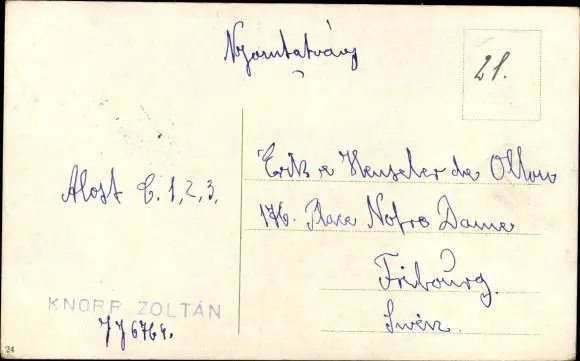 Nyomtatvány
21.
Alost C. 1, 2, 3.
Erik e Henseler de
176. Place Notre Dame
Fribourg.
KNORR ZOLTÁN
JJ 6764.
24